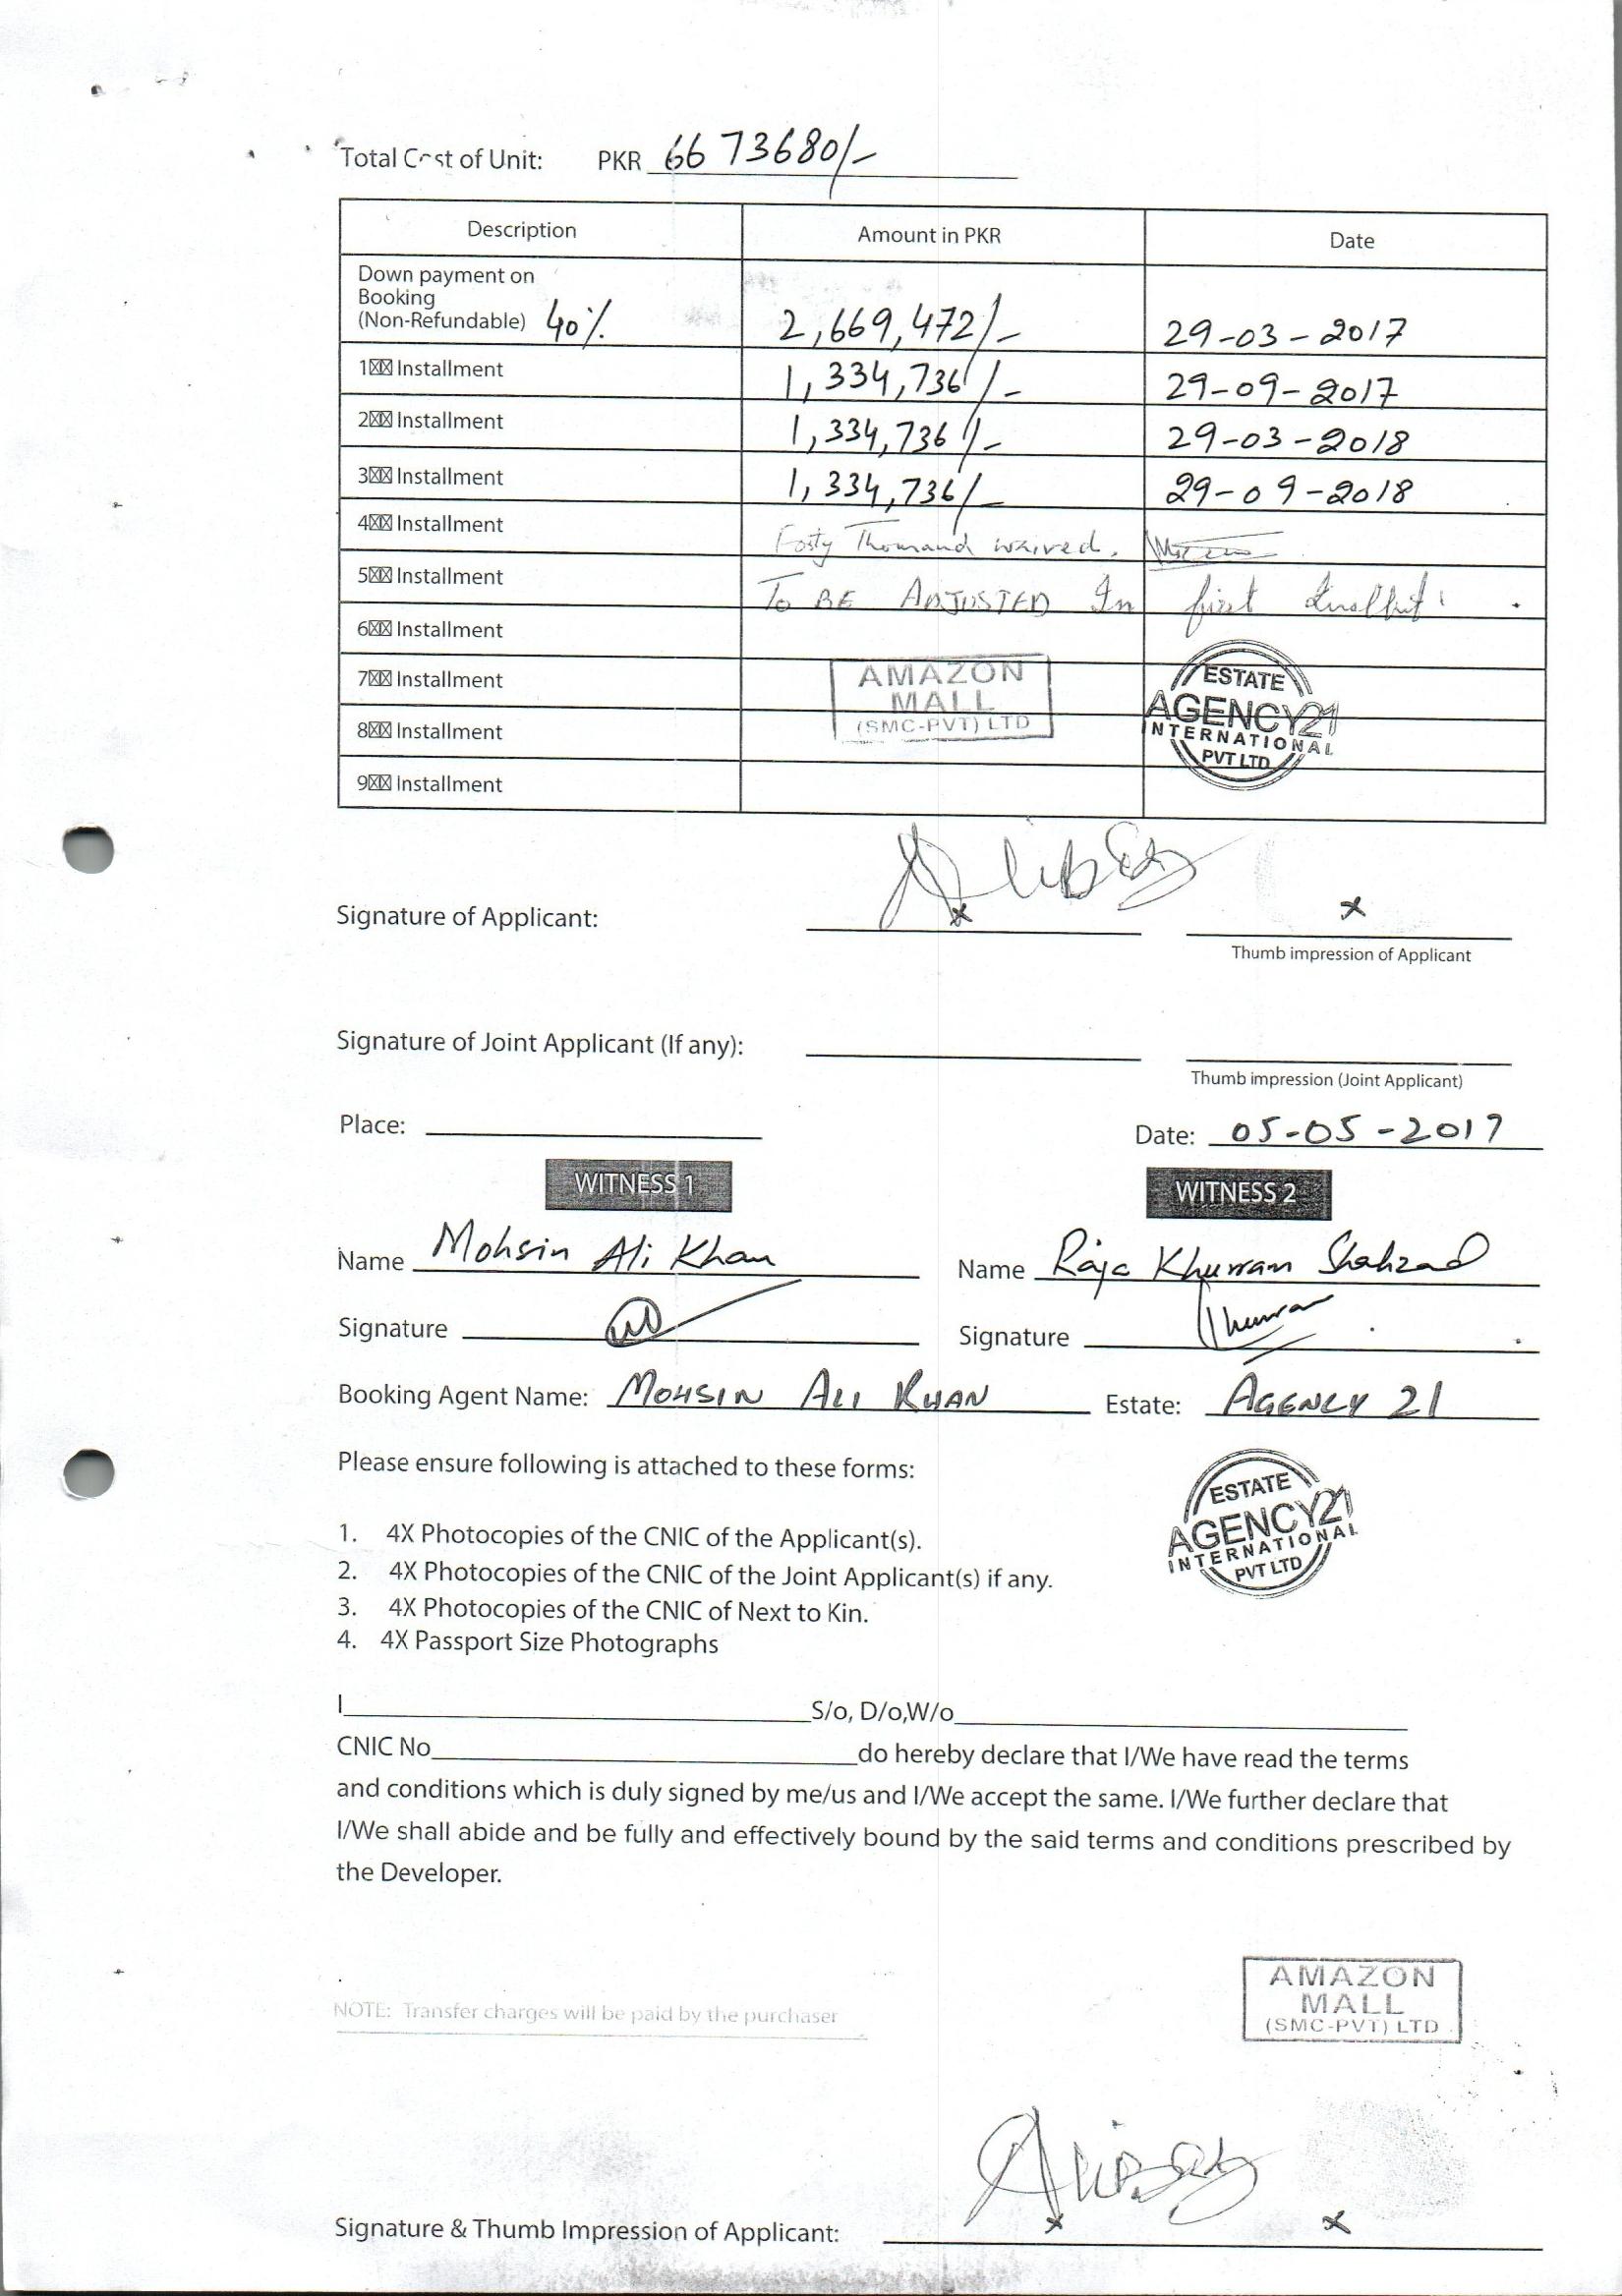 Total Cost of Unit: PKR 6673680/-
Description Amount in PKR Date
Down payment on
Booking
(Non-Refundable) 40% 2,669,472/- 29-03-2017
1 Installment 1,334,736/- 29-09-2017
2 Installment 1,334,736/- 29-03-2018
3 Installment 1,334,736/- 29-09-2018
4 Installment Forty Thousand waived.
5 Installment To BE ADJUSTED In first
6 Installment
7 Installment
8 Installment
9 Installment
AMAZON
MALL
(SMC-PVT) LTD
ESTATE
AGENCY21
INTERNATIONAL
PVT LTD
Signature of Applicant: x x
Thumb impression of Applicant
Signature of Joint Applicant (If any):
Thumb impression (Joint Applicant)
Place: Date: 05-05-2017
WITNESS 1 WITNESS 2
Name Mohsin Ali Khan Name Raja Khurram Shahzad
Signature Signature
Booking Agent Name: MOHSIN ALI KHAN Estate: AGENCY 21
Please ensure following is attached to these forms:
ESTATE
AGENCY21
INTERNATIONAL
PVT LTD
1. 4X Photocopies of the CNIC of the Applicant(s).
2. 4X Photocopies of the CNIC of the Joint Applicant(s) if any.
3. 4X Photocopies of the CNIC of Next to Kin.
4. 4X Passport Size Photographs
I S/o, D/o,W/o
CNIC No do hereby declare that I/We have read the terms
and conditions which is duly signed by me/us and I/We accept the same. I/We further declare that
I/We shall abide and be fully and effectively bound by the said terms and conditions prescribed by
the Developer.
AMAZON
MALL
(SMC-PVT) LTD
NOTE: Transfer charges will be paid by the purchaser
Signature & Thumb Impression of Applicant: x x